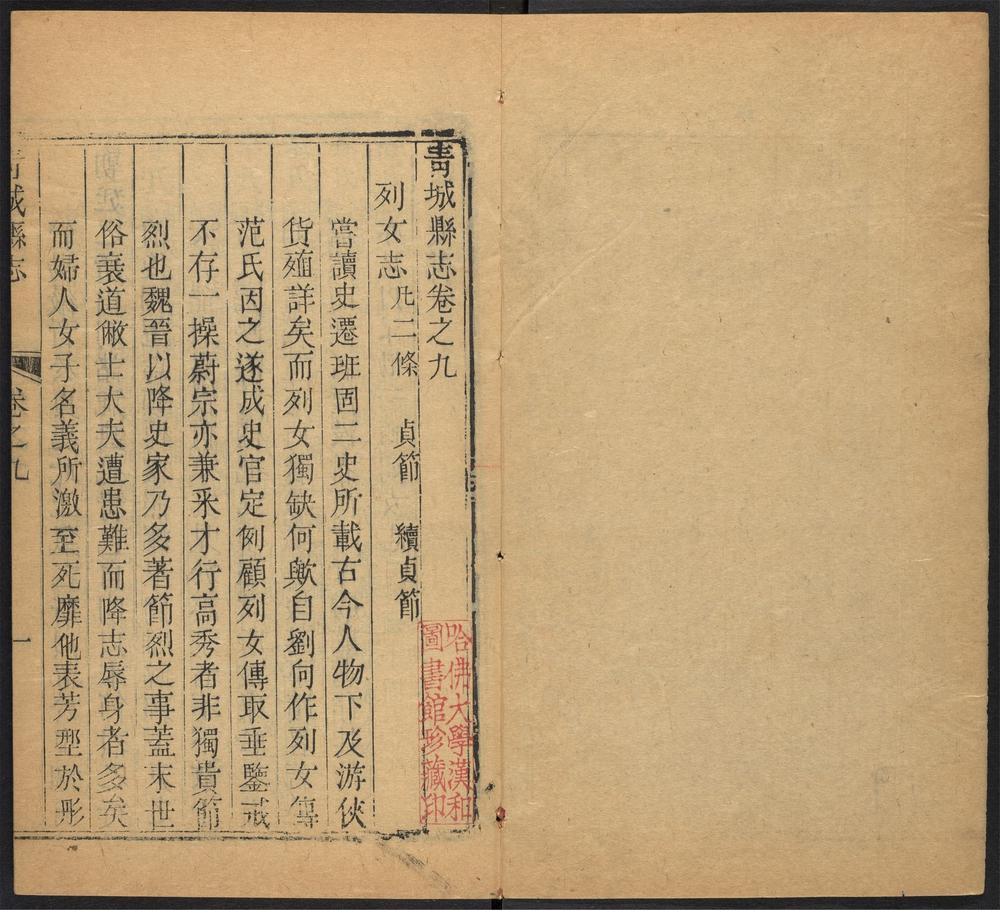 青城縣志卷之九
列女志凡二條　貞節　續貞節
嘗讀史遷班固二史所載古今人物下及游俠
貨殖詳矣而列女獨缺何歟自劉向作列女傳
范氏因之遂成史官定例顧列女傳取垂鑒戒
不存一操蔚宗亦兼采才行高秀者非獨貴節
烈也魏晉以降史家乃多著節烈之事蓋末世
俗衰道敝士大夫遭患難而降志辱身者多矣
而婦人女子名義所激至死靡他表芳型於彤
青城縣志　卷之九　一
哈佛大學漢和
圖書館珍藏印